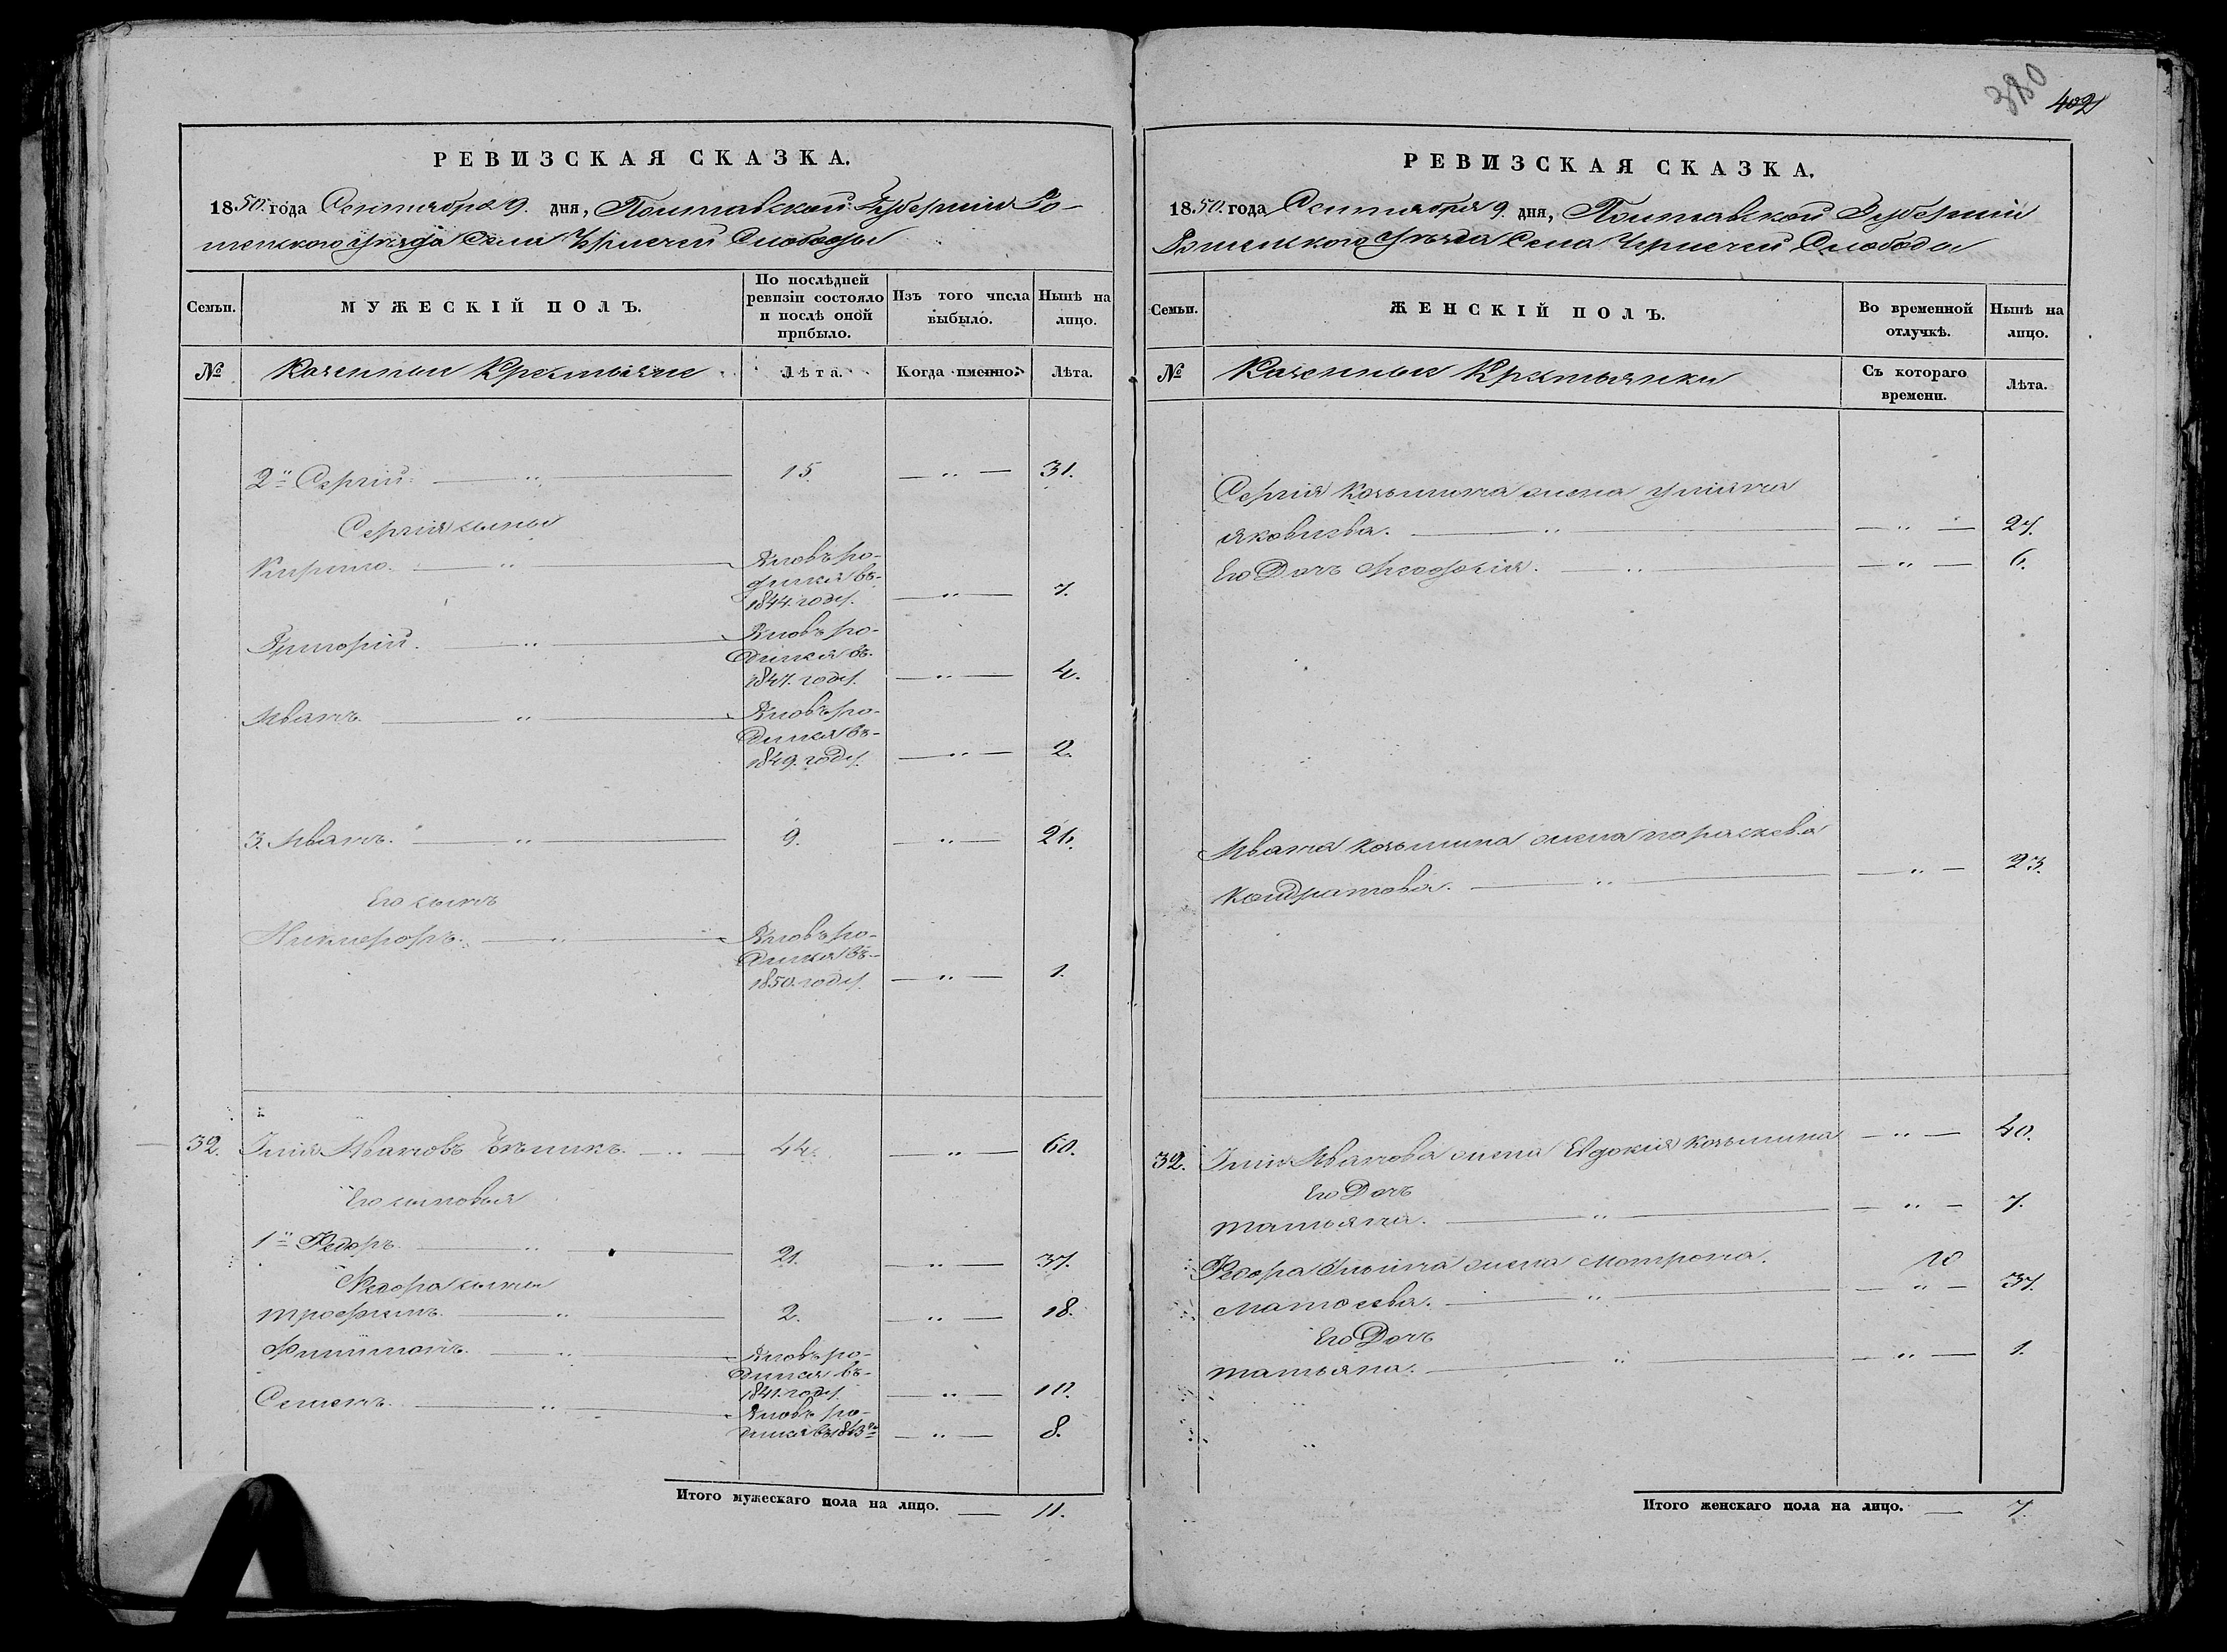 380
402
РЕВИЗСКАЯ СКАЗКА.
1850 года Сентября 9. дня, Полтавской Губерніи Ро-
менского уѣзда села Чернечей Слободы
Семьи.
МУЖЕСКІЙ ПОЛЪ.
По послѣдней ревизіи состояло и послѣ оной прибыло.
Изъ того числа выбыло.
Нынѣ на лицо.
№
Казенные Крестьяне
Лѣта.
Когда именно.
Лѣта.
2й Сергій. — „ — 15. — „ — 31.
Сергія сыны
Кирило. — „ — Вновь ро-
дился въ
1844. году. — „ — 7.
Григорій. — „ — Вновь ро-
дился въ
1847. году. — „ — 4.
Иванъ. — „ — Вновь ро-
дился въ
1849. году. — „ — 2.
3. Иванъ. — „ — 9. — „ — 26.
Его сынъ
Никифоръ. — „ — Вновь ро-
дился въ
1850. году. — „ — 1.
32. Илія Ивановъ — „ — 44. — „ — 60.
Его сыновья
1й Федоръ. — „ — 21. — „ — 37.
Федора сыны
Трофимъ. — „ — 2. — „ — 18.
Филимонъ. — „ — Вновь ро-
дился въ
1841. году. — „ — 10.
Семенъ. — „ — Вновь ро-
дился въ 1843 го — „ — 8.
Итого мужескаго пола на лицо. — 11.
РЕВИЗСКАЯ СКАЗКА.
1850. года Сентября 9. дня, Полтавской Губерніи
Роменского уѣзда Села Чернечей Слободы
Семьи.
ЖЕНСКІЙ ПОЛЪ.
Во временной отлучкѣ.
Нынѣ на лицо.
№
Казенные Крестьянки
Съ котораго времени.
Лѣта.
Сергія Козьмина жена Уліяна
Яковлева. — „ — — „ — 27.
Его Дочь Феодосія. — „ — — „ — 6.
Ивана Козьмина жена Параскева
Кондратова. — „ — — „ — 23.
32. Иліи Иванова жена Евдокія Козьмина — „ — 40.
Его Дочь
Татьяна. — „ — — „ — 7.
Федора Ильина жена Матрона
Матвеева. — „ — — „ — 37.
Его Дочь
Татьяна. — „ — — „ — 1.
Итого женскаго пола на лицо. — 7.